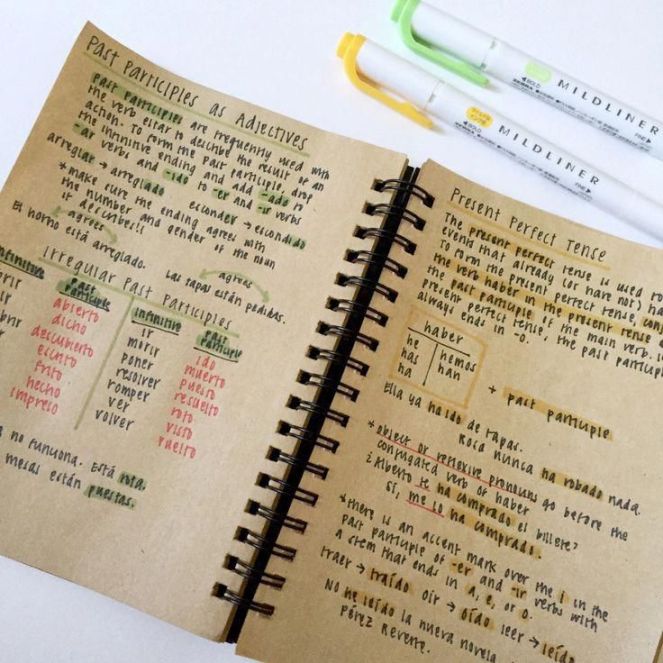 Past Participles as Adjectives
Past participles are frequently used with
the verb estar to describe the result of an
action. To form the past participle, drop
the infinitive ending and add -ado to
-ar verbs and -ido to -er and -ir verbs
arreglar → arreglado esconder → escondido
* make sure the ending agrees with
the number and gender of the noun
it describes!!
agrees
El horno está arreglado.
agrees
Las tapas están pedidas.
Irregular Past Participles
infinitive
past participle
infinitive
past participle
abierto
dicho
descubierto
escrito
frito
hecho
impreso
ir
morir
poner
resolver
romper
ver
volver
ido
muerto
puesto
resuelto
roto
visto
vuelto
no funciona. Está rota.
mesas están puestas.
Present Perfect Tense
The present perfect tense is used
events that already (or have not)
To form the present perfect tense,
the verb haber in the present tense
the past participle of the main verb.
present perfect tense, the past
always ends in -o.
haber
he
has
ha
hemos
han
+ past participle
Ella ya ha ido de tapas.
Roca nunca ha robado nada.
* object or reflexive pronouns go before the
conjugated verb of haber
¿Alberto te ha comprado el billete?
Sí, me lo ha comprado.
* there is an accent mark over the i in the
past participle of -er and -ir verbs with
a stem that ends in a, e, or o.
traer → traído oír → oído leer → leído
No he leído la nueva novela
Pérez Reverte.
MILDLINER
BOLD
FINE
MILDLINER
BOLD
FINE